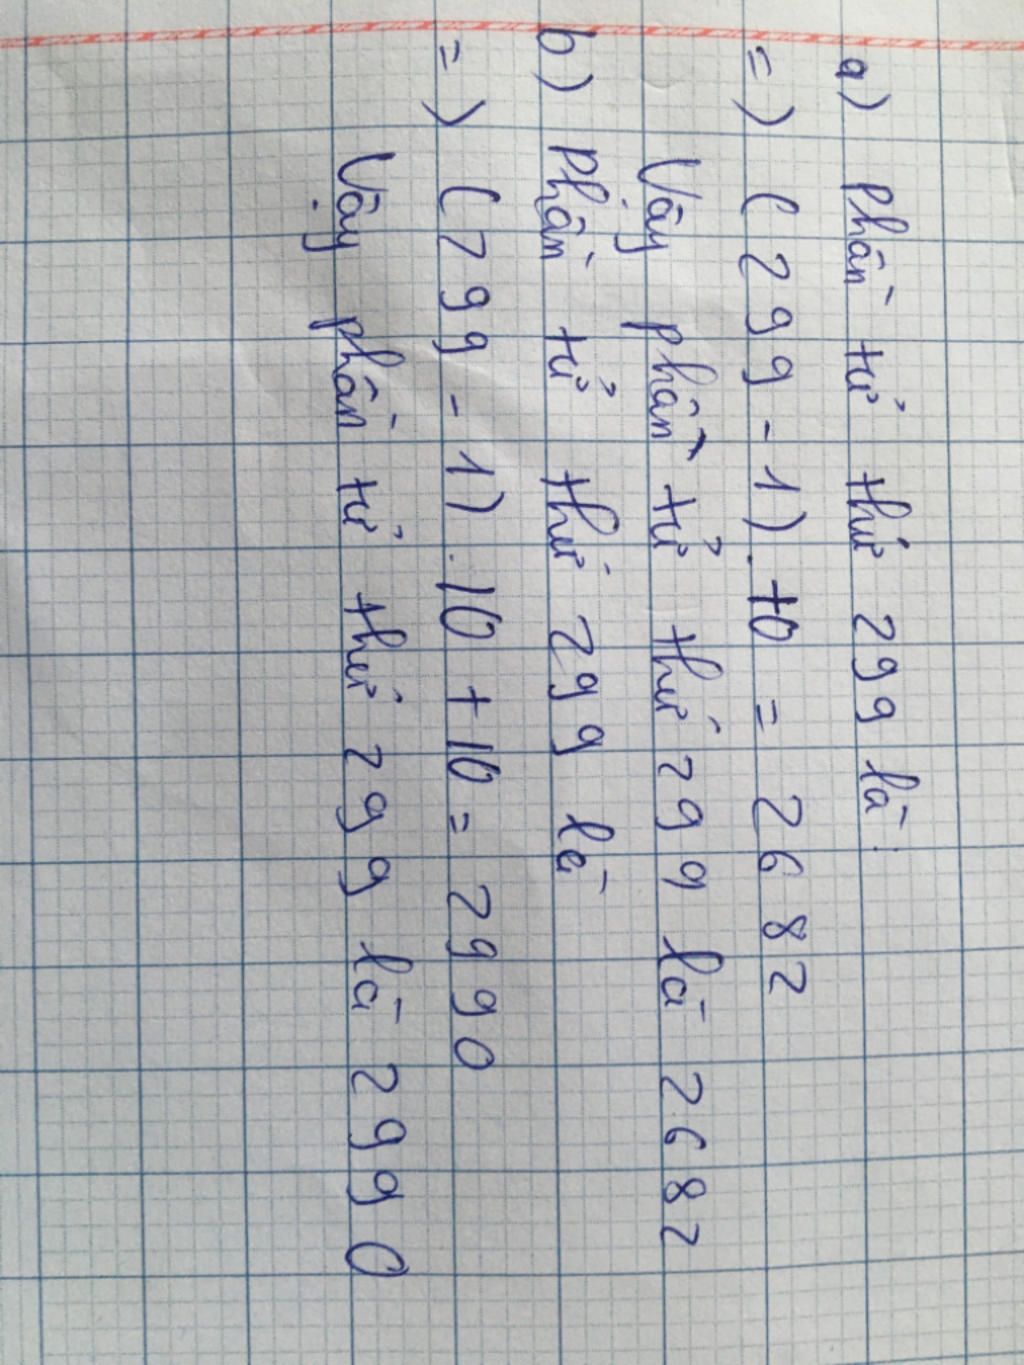 a) Phần tử thứ 299 là:
=) (299 - 1) . 10 = 2682
Vậy phần tử thứ 299 là 2682
b) Phần tử thứ 299 là
=) (299 - 1) . 10 + 10 = 2990
Vậy phần tử thứ 299 là 2990